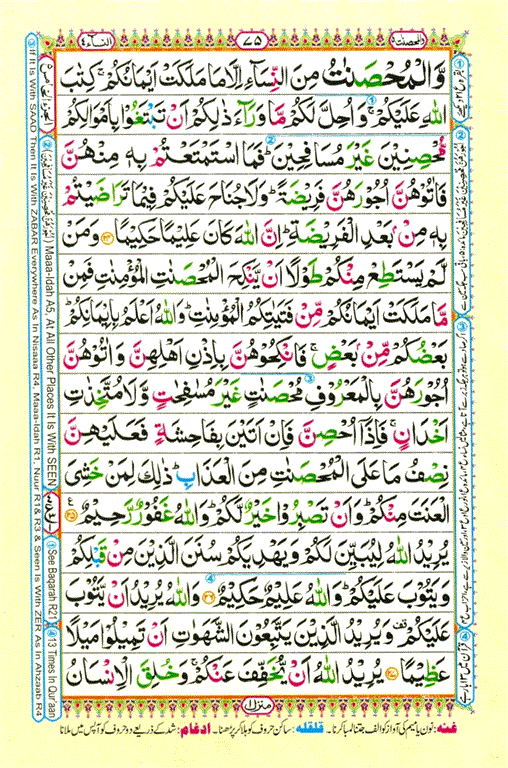 والمحصنت ٥
٧٥
النسآء ٤
وَّالْمُحْصَنٰتُ مِنَ النِّسَآءِ اِلَّا مَا مَلَكَتْ اَيْمَانُكُمْ ۚ كِتٰبَ
اللهِ عَلَيْكُمْ ۚ وَاُحِلَّ لَكُمْ مَّا وَرَآءَ ذٰلِكُمْ اَنْ تَبْتَغُوْا بِاَمْوَالِكُمْ
مُّحْصِنِيْنَ غَيْرَ مُسَافِحِيْنَ ؕ فَمَا اسْتَمْتَعْتُمْ بِهٖ مِنْهُنَّ
فَاٰتُوْهُنَّ اُجُوْرَهُنَّ فَرِيْضَةً ؕ وَلَا جُنَاحَ عَلَيْكُمْ فِيْمَا تَرَاضَيْتُمْ
بِهٖ مِنْۢ بَعْدِ الْفَرِيْضَةِ ؕ اِنَّ اللهَ كَانَ عَلِيْمًا حَكِيْمًا ﴿۲۴﴾ وَمَنْ
لَّمْ يَسْتَطِعْ مِنْكُمْ طَوْلًا اَنْ يَّنْكِحَ الْمُحْصَنٰتِ الْمُؤْمِنٰتِ فَمِنْ
مَّا مَلَكَتْ اَيْمَانُكُمْ مِّنْ فَتَيٰتِكُمُ الْمُؤْمِنٰتِ ؕ وَاللهُ اَعْلَمُ بِاِيْمَانِكُمْ ؕ
بَعْضُكُمْ مِّنْۢ بَعْضٍ ۚ فَانْكِحُوْهُنَّ بِاِذْنِ اَهْلِهِنَّ وَاٰتُوْهُنَّ
اُجُوْرَهُنَّ بِالْمَعْرُوْفِ مُحْصَنٰتٍ غَيْرَ مُسٰفِحٰتٍ وَّلَا مُتَّخِذٰتِ
اَخْدَانٍ ۚ فَاِذَاۤ اُحْصِنَّ فَاِنْ اَتَيْنَ بِفَاحِشَةٍ فَعَلَيْهِنَّ
نِصْفُ مَا عَلَى الْمُحْصَنٰتِ مِنَ الْعَذَابِ ؕ ذٰلِكَ لِمَنْ خَشِىَ
الْعَنَتَ مِنْكُمْ ؕ وَاَنْ تَصْبِرُوْا خَيْرٌ لَّكُمْ ؕ وَاللهُ غَفُوْرٌ رَّحِيْمٌ ﴿۲۵﴾
يُرِيْدُ اللهُ لِيُبَيِّنَ لَكُمْ وَيَهْدِيَكُمْ سُنَنَ الَّذِيْنَ مِنْ قَبْلِكُمْ
وَيَتُوْبَ عَلَيْكُمْ ؕ وَاللهُ عَلِيْمٌ حَكِيْمٌ ﴿۲۶﴾ وَاللهُ يُرِيْدُ اَنْ يَّتُوْبَ
عَلَيْكُمْ ۫ وَيُرِيْدُ الَّذِيْنَ يَتَّبِعُوْنَ الشَّهَوٰتِ اَنْ تَمِيْلُوْا مَيْلًا
عَظِيْمًا ﴿۲۷﴾ يُرِيْدُ اللهُ اَنْ يُّخَفِّفَ عَنْكُمْ ۚ وَخُلِقَ الْاِنْسَانُ
منزل ١
غنه: نون یا میم کی آواز کو الف جتنا لمبا کرنا۔ قلقله: ساکن حروف کو ہلا کر پڑھنا۔ ادغام: شد کے ذریعے دو حروف کو آپس میں ملانا
③ If It Is With SAAD Then It Is With ZABAR Everywhere As In Nisaaa R4, Maaa-Idah R1, Nuur R1& R3 & Seen Is With ZER As In Ahzaab R4
الجزء الخامس ٥
② Maaa-Idah A5, At All Other Places It Is With SEEN
① See Baqarah R21
④ 13 Times In Qur'aan